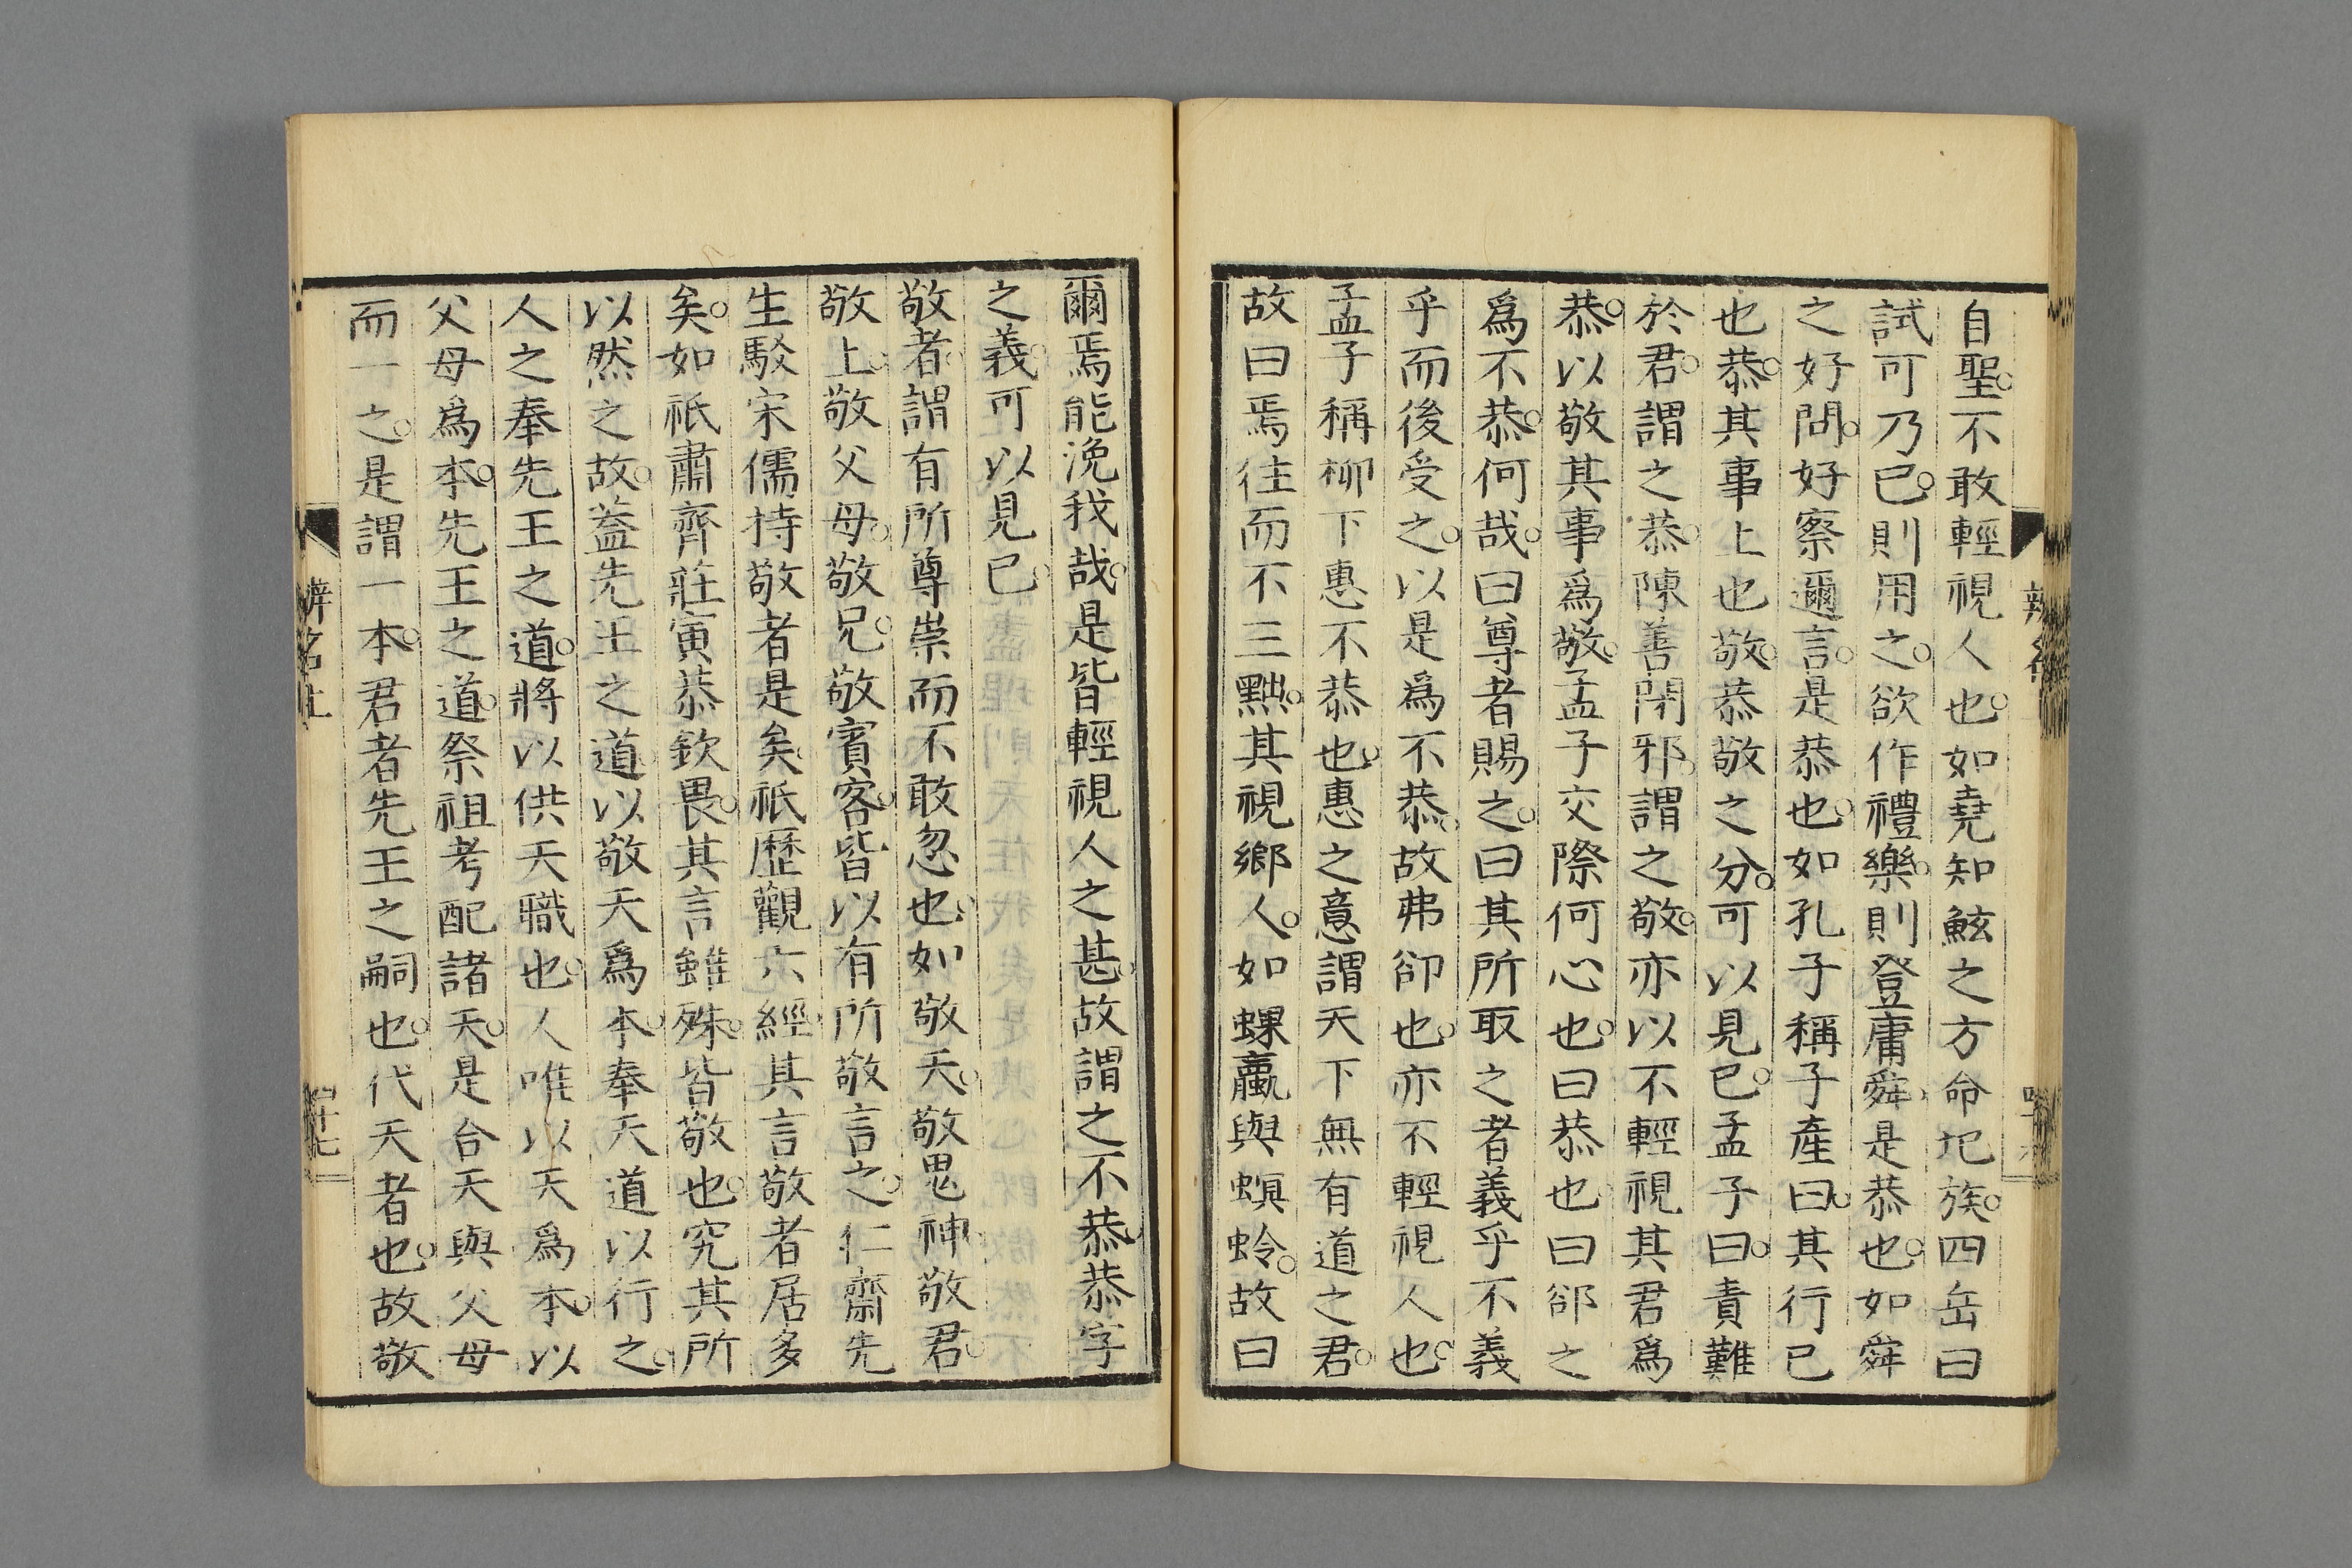 自聖。不敢輕視人也。如堯知鮌之方命圮族。四岳曰
試可乃已。則用之。欲作禮樂。則登庸舜。是恭也。如舜
之好問。好察邇言。是恭也。如孔子稱子產曰。其行已
也恭。其事上也敬。恭敬之分。可以見已。孟子曰。責難
於君。謂之恭。陳善閉邪。謂之敬。亦以不輕視其君爲
恭。以敬其事爲敬。孟子交際何心也。曰恭也。曰卻之
爲不恭。何哉。曰尊者賜之。曰其所取之者義乎不義
乎而後受之。以是爲不恭。故弗卻也。亦不輕視人也。
孟子稱柳下惠不恭也。惠之意謂天下無有道之君。
故曰焉往而不三黜。其視鄉人。如蜾蠃與螟蛉。故曰
爾焉能浼我哉。是皆輕視人之甚。故謂之不恭。恭字
之義。可以見已。
敬者。謂有所尊崇而不敢忽也。如敬天。敬鬼神。敬君。
敬上。敬父母。敬兄。敬賓客。皆以有所敬言之。仁齋先
生駁宋儒持敬者是矣。祇歷觀六經。其言敬者居多
矣。如祇肅齊莊寅恭欽畏。其言雖殊。皆敬也。究其所
以然之故。蓋先王之道。以敬天爲本。奉天道以行之。
人之奉先王之道。將以供天職也。人唯以天爲本。以
父母爲本。先王之道。祭祖考配諸天。是合天與父母
而一之。是謂一本。君者先王之嗣也。代天者也。故敬
辨名上
四十七